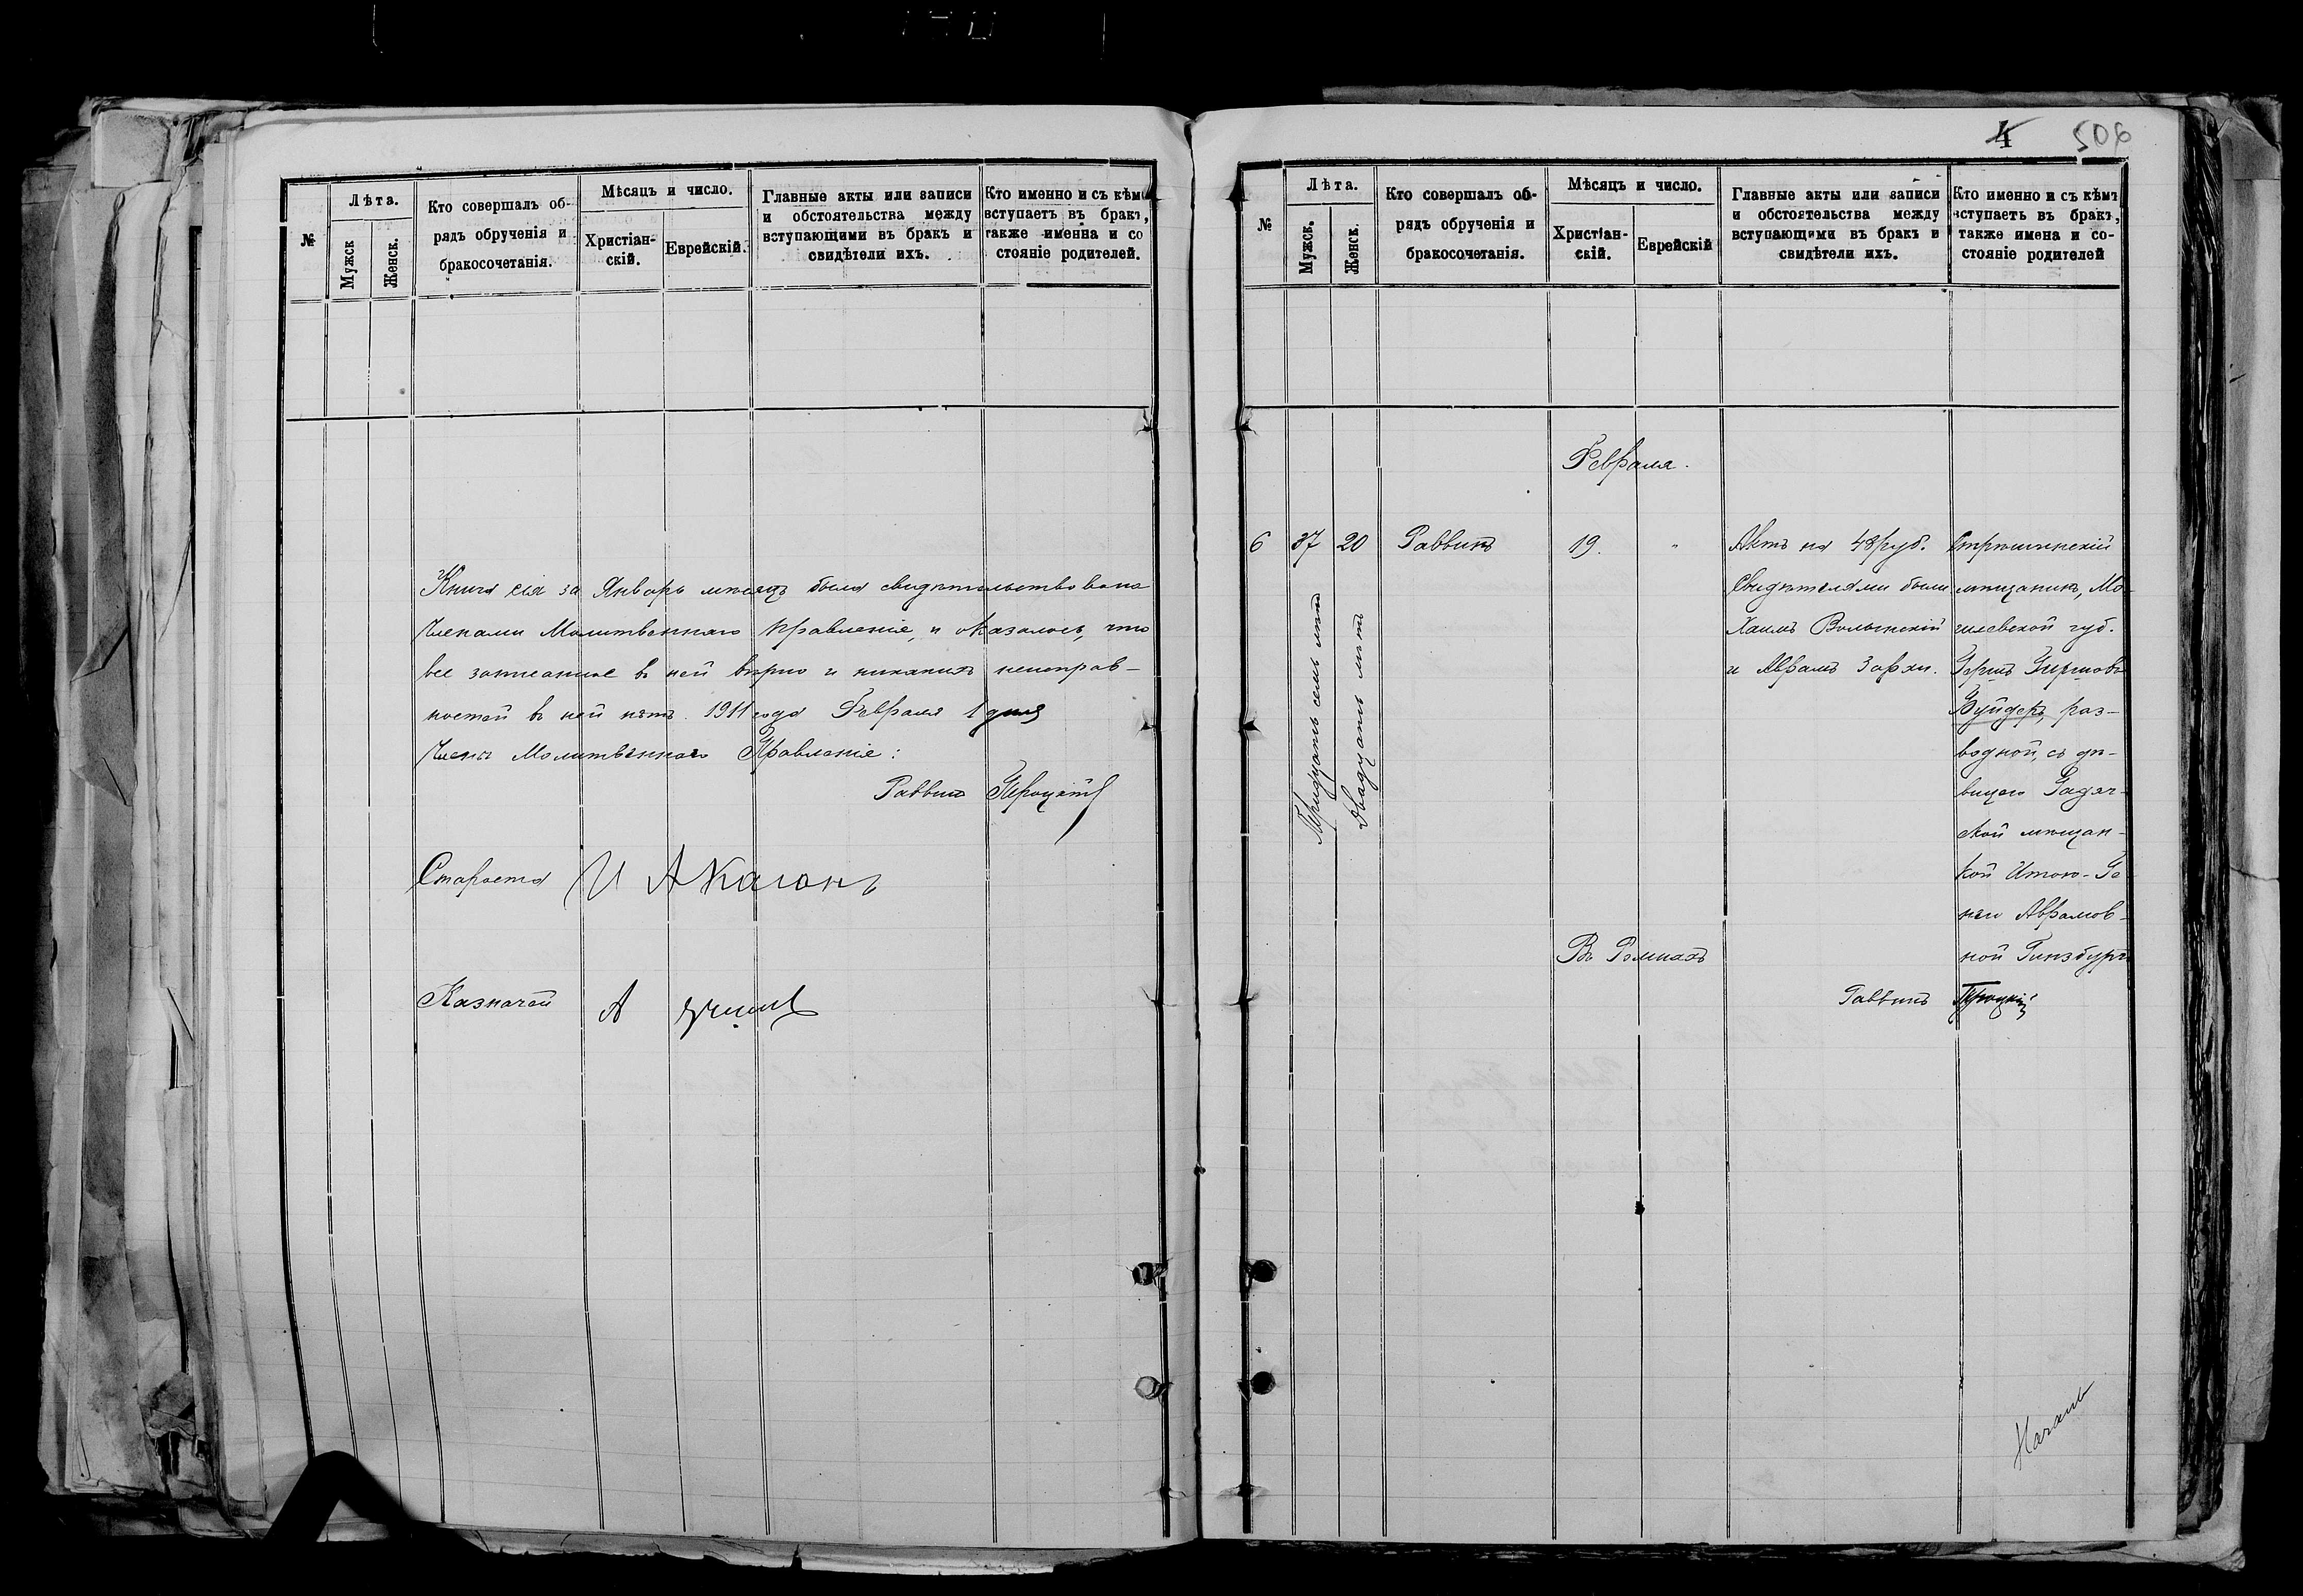 №
Лѣта.
Мужск
Женск.
Кто совершалъ об-
рядъ обрученія и
бракосочетанія.
Мѣсяцъ и число.
Христіан-
скій.
Еврейскій.
Главные акты или записи
и обстоятельства между
вступающими въ бракъ и
свидѣтели ихъ.
Кто именно и съ кѣмъ
вступаетъ въ бракъ,
также именна и со
стояніе родителей.
Книга сія за Январь мѣсяцъ была свидѣтельствована
Членами Молитвеннаго Правленія, и оказалось, что
все записанное въ ней вѣрно и никакихъ неисправ-
ностей въ ней нѣтъ. 1911 года Февраля 1 дня
Члены Молитвеннаго Правленія:
Раввинъ Троцкій
Староста И А Каганъ
Казначей А
4 506
№
Лѣта.
Мужск.
Женск.
Кто совершалъ об-
рядъ обрученія и
бракосочетанія.
Мѣсяцъ и число.
Христіан-
скій.
Еврейскій
Главные акты или записи
и обстоятельства между
вступающими въ бракъ и
свидѣтели ихъ.
Кто именно и съ кѣмъ
вступаетъ въ бракъ,
также имена и со-
стояніе родителей
Февраля.
6 37 20 Раввинъ 19. " Актъ на 48 руб.
Свидѣтелями были
Хаимъ Волынскій
и Абрамъ Зархи.
Тридцать семь лѣтъ
Двадцать лѣтъ
Стрѣшинскій
мѣщанинъ, Мо-
гилевской губ.
Гершъ Гиршовъ
Вуйдеръ, раз-
водной, съ дѣ-
вицею Гадяч-
ской мѣщан-
кой Итою-Ге
нею Абрамов-
ной Гинзбургъ
Въ Ромнахъ
Раввинъ Троцкій